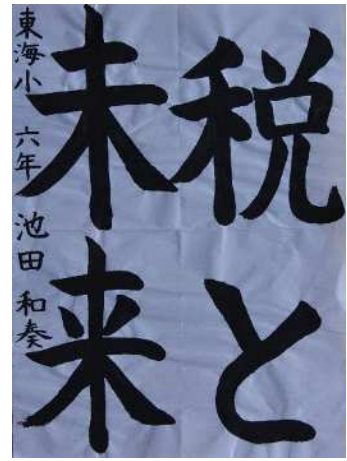 税と
未来
東海小 六年 池田 和奏